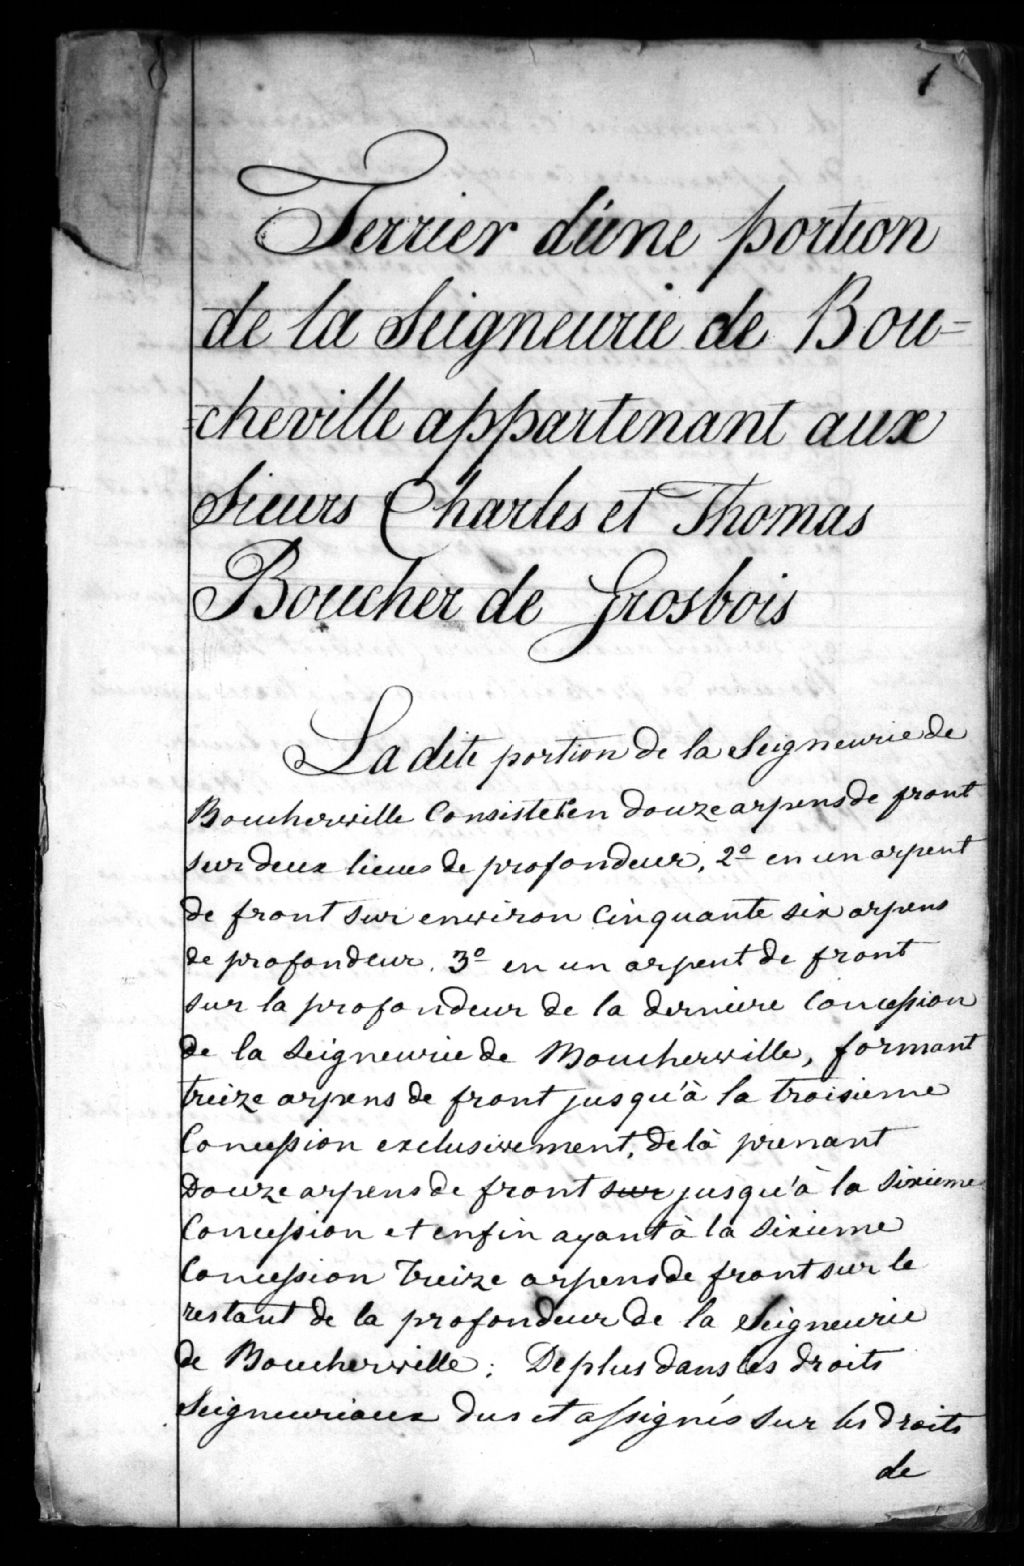 1
Terrier d'une portion
de la Seigneurie de Bou=
=cheville appartenant aux
Sieurs Charles et Thomas
Boucher de Grosbois
La dite portion de la Seigneurie de
Boucherville Consiste 1º en douze arpens de front
sur deux lieues de profondeur, 2º en un arpent
de front sur environ Cinquante six arpens
de profondeur. 3º en un arpent de front
sur la profondeur de la derniere Concession
de la Seigneurie de Boucherville, formant
treize arpens de front jusqu'à la troisieme
Concession exclusivement, de là prenant
Douze arpens de front sur jusqu'à la Sixieme
Concession et enfin ayant à la Sixieme
Concession Treize arpens de front sur le
restant de la profondeur de la Seigneurie
de Boucherville : De plus dans les droits
Seigneuriaux dus et assignés sur les droits
de